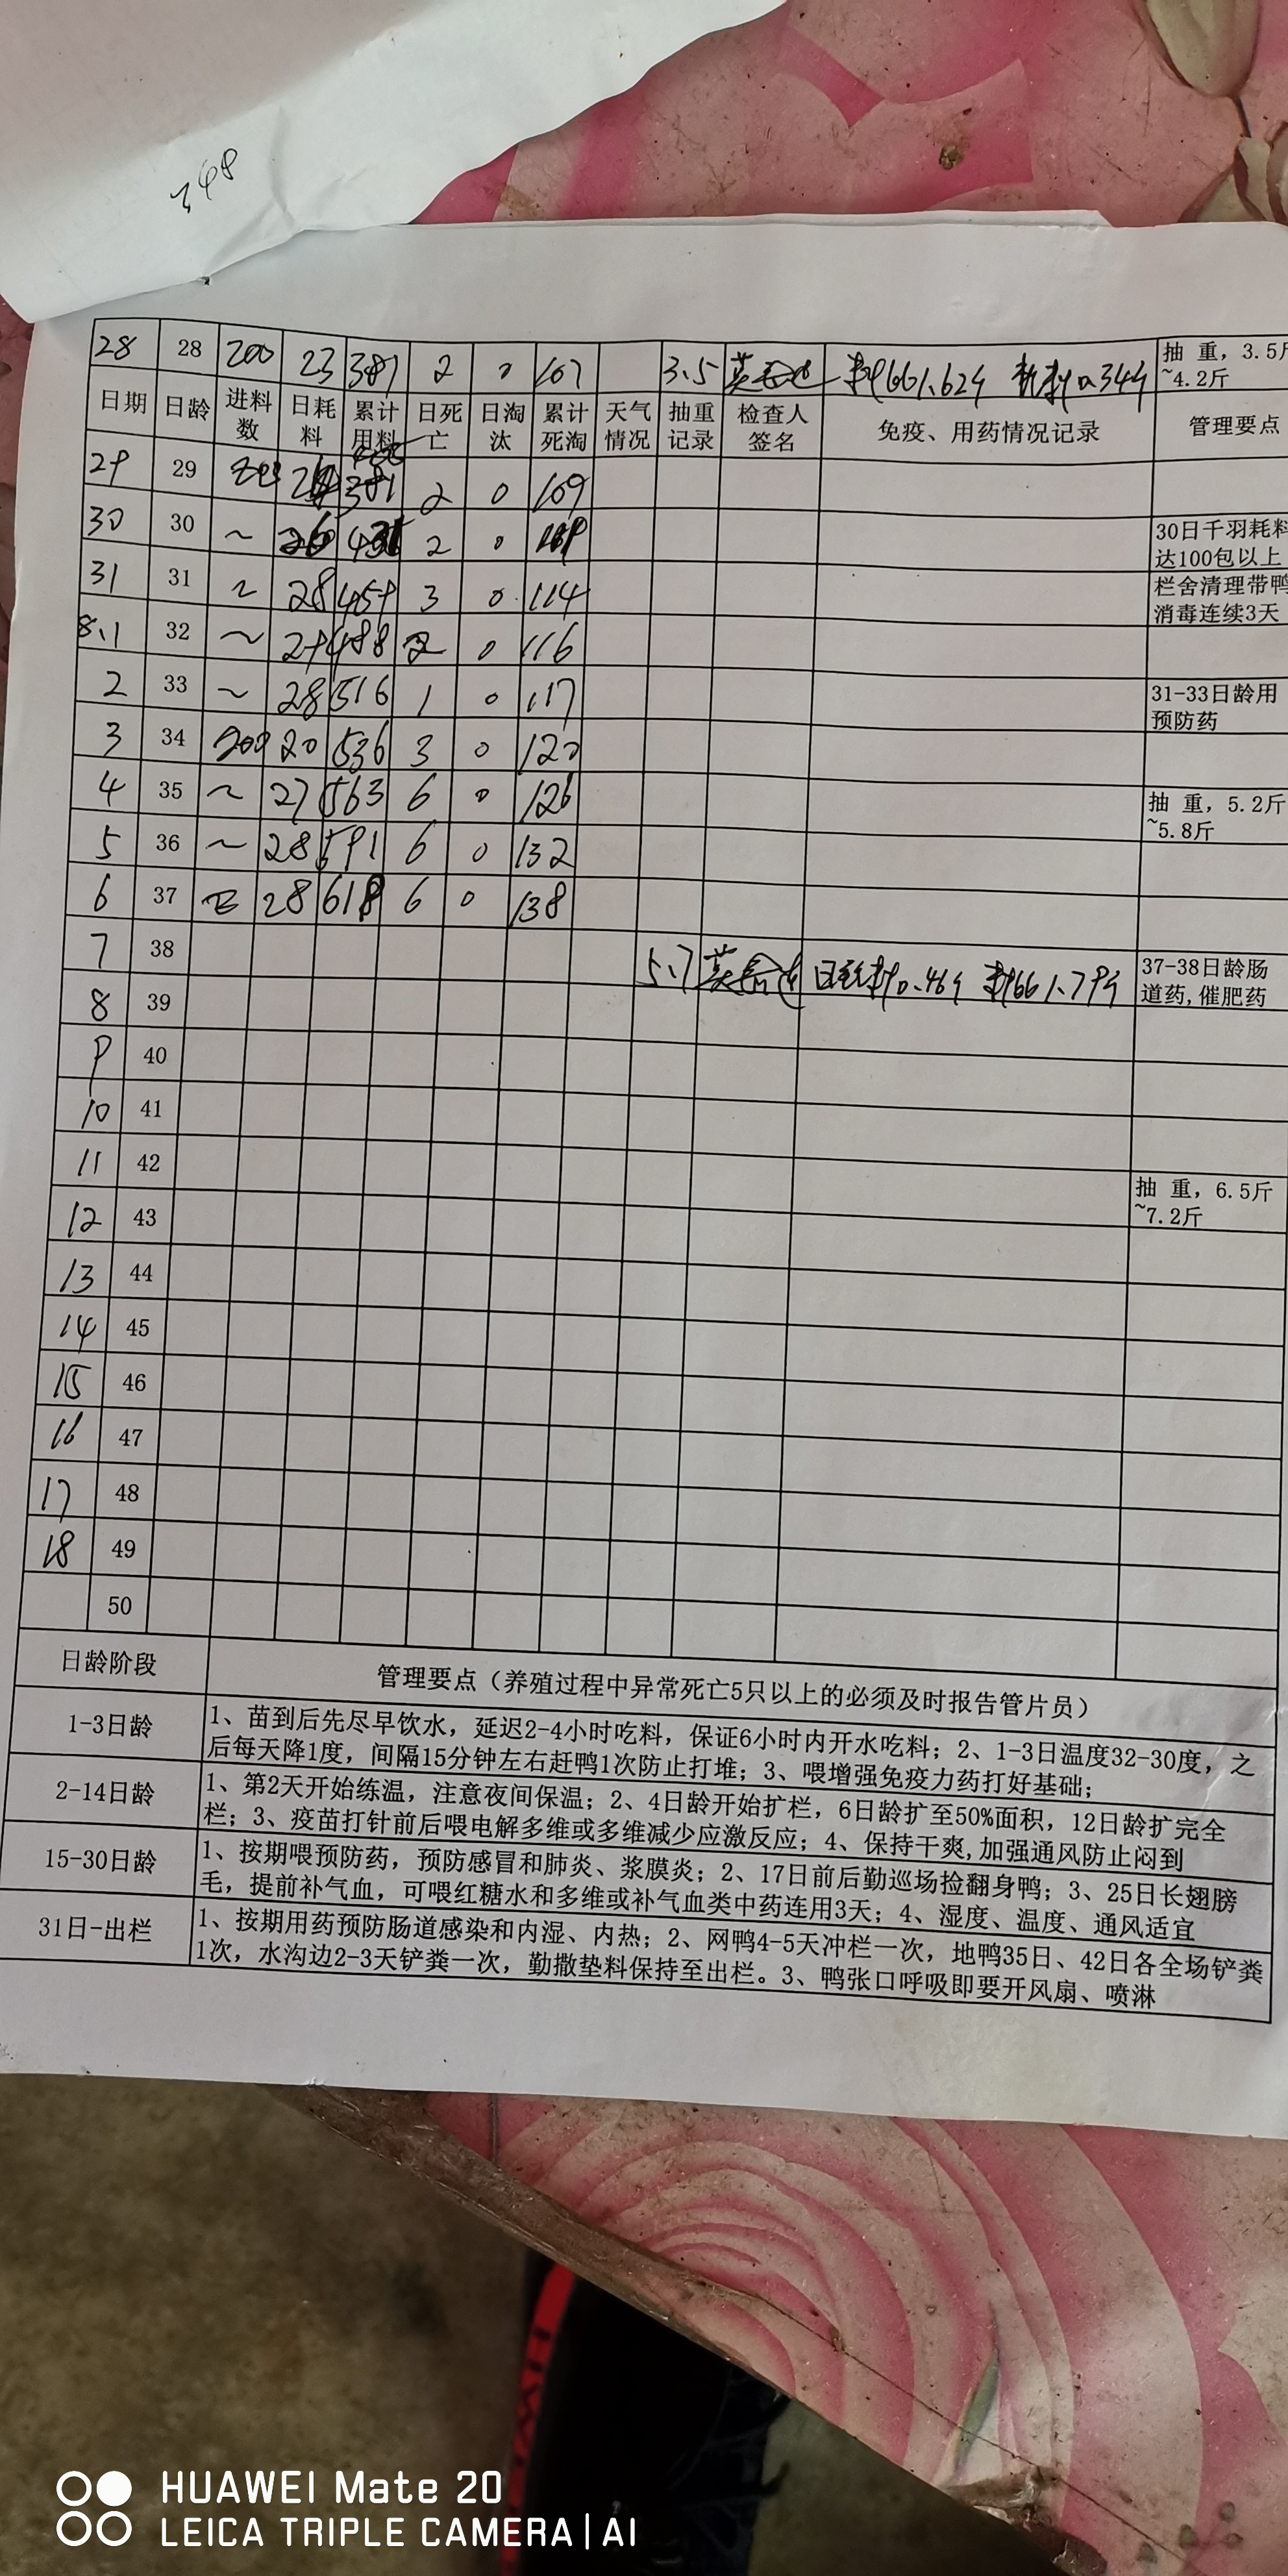 348
28 28 200 23 381 2 0 107 3.5 料肉比1.62斤 耗料0.34斤 抽 重，3.5斤
~4.2斤
日期 日龄 进料数 日耗料 累计用料 日死亡 日淘汰 累计死淘 天气情况 抽重记录 检查人签名 免疫、用药情况记录 管理要点
29 29 2 0 109
30 30 ~ 26 431 2 0 30日千羽耗料
达100包以上
31 31 ~ 28 459 3 0 114 栏舍清理带鸭
消毒连续3天
8.1 32 ~ 29 488 2 0 116
2 33 ~ 28 516 1 0 117 31-33日龄用
预防药
3 34 200 20 536 3 0 120
4 35 ~ 27 563 6 0 126 抽 重，5.2斤
~5.8斤
5 36 ~ 28 591 6 0 132
6 37 28 618 6 0 138
7 38 5.7 日耗料0.46斤 料肉比1.79斤 37-38日龄肠
道药,催肥药
8 39
9 40
10 41
11 42
12 43 抽 重，6.5斤
~7.2斤
13 44
14 45
15 46
16 47
17 48
18 49
50
日龄阶段 管理要点（养殖过程中异常死亡5只以上的必须及时报告管片员）
1-3日龄 1、苗到后先尽早饮水，延迟2-4小时吃料，保证6小时内开水吃料；2、1-3日温度32-30度，之
后每天降1度，间隔15分钟左右赶鸭1次防止打堆；3、喂增强免疫力药打好基础；
2-14日龄 1、第2天开始练温，注意夜间保温；2、4日龄开始扩栏，6日龄扩至50%面积，12日龄扩完全
栏；3、疫苗打针前后喂电解多维或多维减少应激反应；4、保持干爽,加强通风防止闷到
15-30日龄 1、按期喂预防药，预防感冒和肺炎、浆膜炎；2、17日前后勤巡场捡翻身鸭；3、25日长翅膀
毛，提前补气血，可喂红糖水和多维或补气血类中药连用3天；4、湿度、温度、通风适宜
31日-出栏 1、按期用药预防肠道感染和内湿、内热；2、网鸭4-5天冲栏一次，地鸭35日、42日各全场铲粪
1次，水沟边2-3天铲粪一次，勤撒垫料保持至出栏。3、鸭张口呼吸即要开风扇、喷淋
HUAWEI Mate 20
LEICA TRIPLE CAMERA | AI